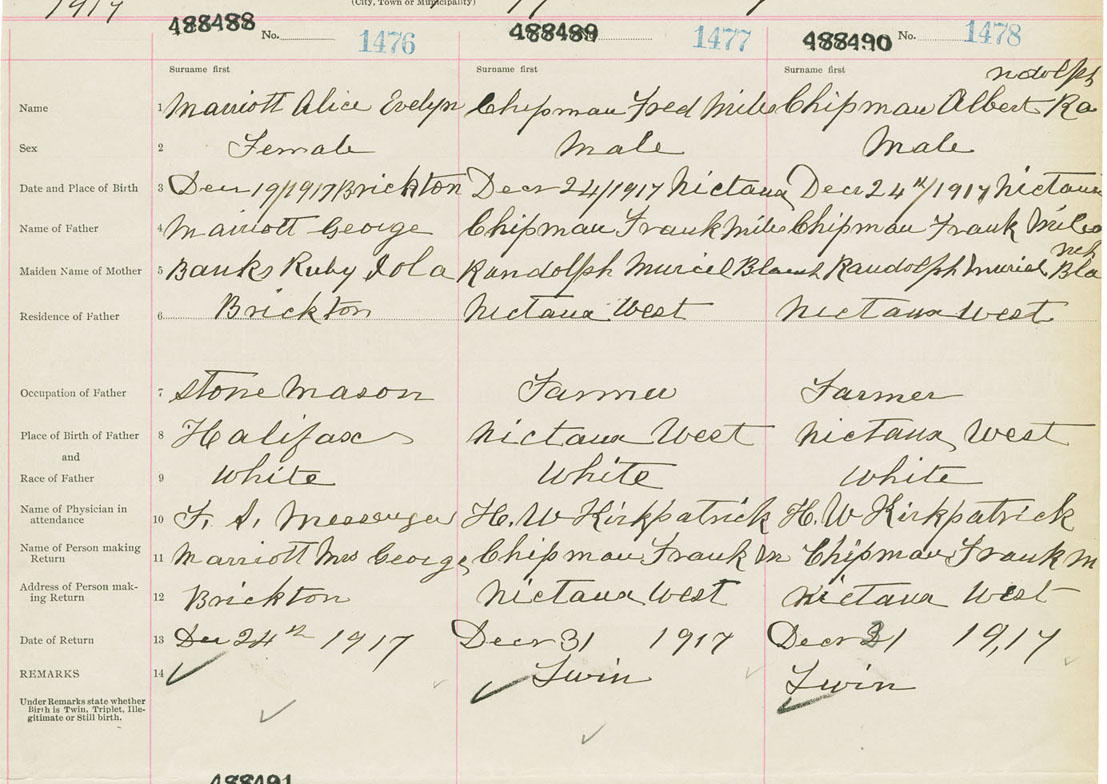 1917
(City, Town or Municipality)
488488 No. 1476 488489 1477 488490 No. 1478
Surname first Surname first Surname first
ndolph
Name 1 Marriott Alice Evelyn Chipman Fred Miles Chipman Albert Ra
Sex 2 Female Male Male
Date and Place of Birth 3 Decr 19/1917 Brickton Decr 24/1917 Nictaux Decr 24th/1917 Nictaux
Name of Father 4 Marriott George Chipman Frank Miles Chipman Frank Miles
nch
Maiden Name of Mother 5 Banks Ruby Iola Randolph Muriel Blanch Randolph Muriel Bla
Residence of Father 6 Brickton Nictaux West Nictaux West
Occupation of Father 7 Stone Mason Farmer Farmer
Place of Birth of Father 8 Halifax Nictaux West Nictaux West
and
Race of Father 9 White White White
Name of Physician in
attendance 10 F. S. Messenger H. W Kirkpatrick H. W Kirkpatrick
Name of Person making
Return 11 Marriott Mrs George Chipman Frank M Chipman Frank M
Address of Person mak-
ing Return 12 Brickton Nictaux West Nictaux West
Date of Return 13 Dec 24th 1917 Decr 31 1917 Decr 31 1917
REMARKS 14 Twin Twin
Under Remarks state whether
Birth is Twin, Triplet, Ille-
gitimate or Still birth.
488491